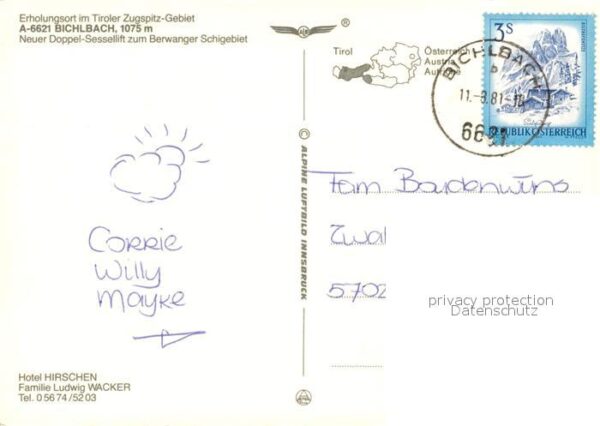 Erholungsort im Tiroler Zugspitz-Gebiet
A-6621 BICHLBACH, 1075 m
Neuer Doppel-Sessellift zum Berwanger Schigebiet
®
Tirol
Österreich
Austria
3 S
BICHLBACH
b
11.-8.81-
6621
REPUBLIK ÖSTERREICH
ALPINE LUFTBILD INNSBRUCK
Corrie
Willy
Mayke
Fam
Zwal
5702
privacy protection
Datenschutz
Hotel HIRSCHEN
Familie Ludwig WACKER
Tel. 0 56 74 / 52 03